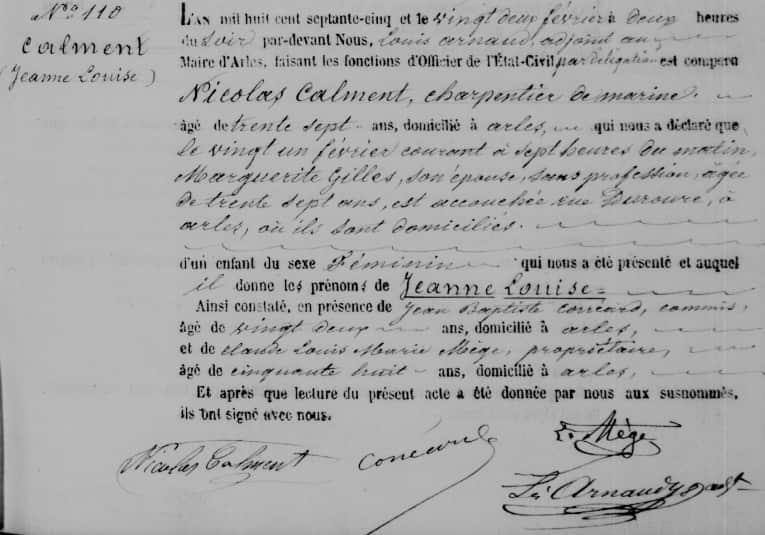 N° 110
Calment
(Jeanne Louise)
L'AN mil huit cent septante-cinq et le vingt deux février à deux heures
du soir par-devant Nous, Louis Arnaud, adjoint au
Maire d'Arles, faisant les fonctions d'Officier de l'État-Civil, par délégation est comparu
Nicolas Calment, charpentier de marine.
âgé de trente sept ans, domicilié à arles, qui nous a déclaré que
le vingt un février courant à sept heures du matin,
Marguerite Gilles, son épouse, sans profession, âgée
de trente sept ans, est accouchée rue Duroure, à
arles, où ils sont domiciliés.
d'un enfant du sexe Féminin qui nous a été présenté et auquel
il donne les prénoms de Jeanne Louise
Ainsi constaté, en présence de Jean Baptiste commis,
âgé de vingt deux ans, domicilié à arles,
et de claude Louis Marie Mège, propriétaire,
âgé de cinquante huit ans, domicilié à arles,
Et après que lecture du présent acte a été donnée par nous aux susnommés,
ils ont signé avec nous.
L. Mège
Nicolas Calment
Arnaud